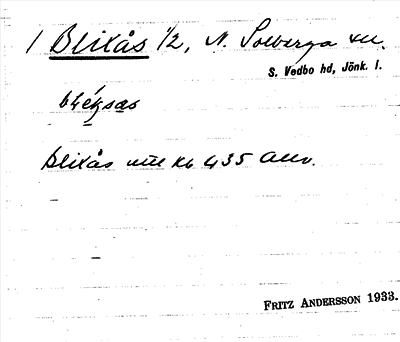 1 Blixås 1/2, N. Solberga sn.
S. Vedbo hd, Jönk. l.
Blixås mtl Kb 435 Auv.
FRITZ ANDERSSON 1933.